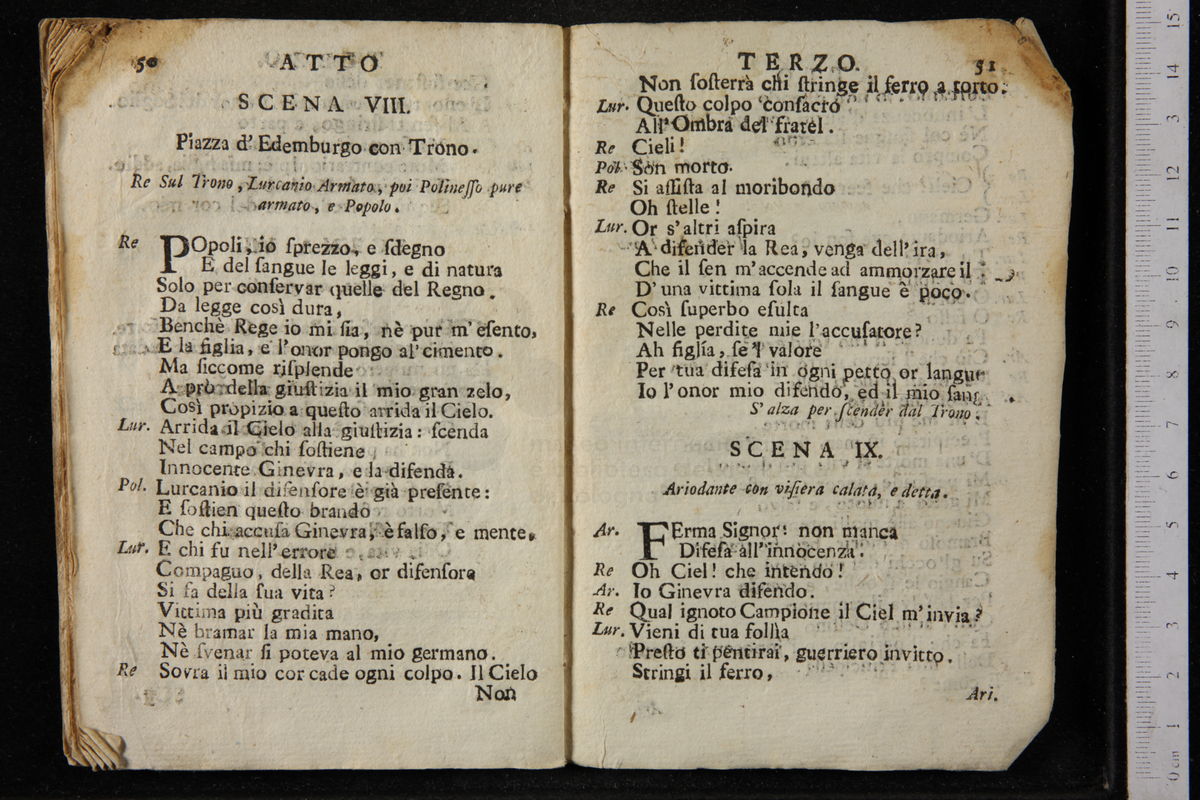 50 ATTO
SCENA VIII.
Piazza d' Edemburgo con Trono.
Re Sul Trono, Lurcanio Armato, poi Polineſſo pure
armato, e Popolo.
Re POpoli, io ſprezzo, e ſdegno
E del ſangue le leggi, e di natura
Solo per conſervar quelle del Regno.
Da legge così dura,
Benchè Rege io mi ſia, nè pur m' eſento,
E la figlia, e l'onor pongo al' cimento.
Ma ſiccome riſplende
A prò della giuſtizia il mio gran zelo,
Così propizio a queſto arrida il Cielo.
Lur. Arrida il Cielo alla giuſtizia: ſcenda
Nel campo chi ſoſtiene
Innocente Ginevra, e la difenda.
Pol. Lurcanio il difenſore è già preſente:
E ſoſtien queſto brando
Che chi accuſa Ginevra, è falſo, e mente.
Lur. E chi fu nell' errore
Compaguo, della Rea, or difenſore
Si fa della ſua vita?
Vittima più gradita
Nè bramar la mia mano,
Nè ſvenar ſi poteva al mio germano.
Re Sovra il mio cor cade ogni colpo. Il Cielo
Non
TERZO. 51
Non ſoſterrà chi ſtringe il ferro a torto.
Lur. Queſto colpo conſacro
All' Ombra del fratel.
Re Cieli!
Pol. Son morto.
Re Si aſſiſta al moribondo
Oh ſtelle!
Lur. Or s' altri aſpira
A difender la Rea, venga dell' ira,
Che il ſen m'accende ad ammorzare il
D' una vittima ſola il ſangue è poco.
Re Così ſuperbo eſulta
Nelle perdite mie l'accuſatore?
Ah figlia, ſe 'l valore
Per tua difeſa in ogni petto or langue
Io l' onor mio difendo, ed il mio
S' alza per ſcender dal Trono.
SCENA IX.
Ariodante con viſiera calata, e detta.
Ar. FErma Signor: non manca
Difeſa all' innocenza.
Re Oh Ciel! che intendo!
Ar. Io Ginevra difendo.
Re Qual ignoto Campione il Ciel m' invia?
Lur. Vieni di tua follìa
Preſto ti pentirai, guerriero invitto.
Stringi il ferro,
Ari.
0 cm 1 2 3 4 5 6 7 8 9 10 11 12 13 14 15